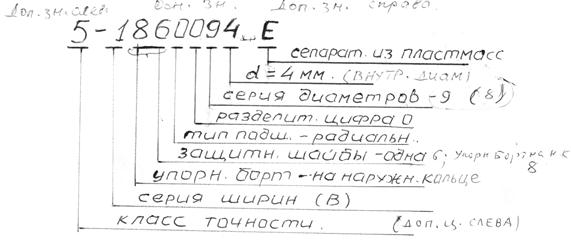 Доп. зн. слев. Осн. зн. Доп. зн. справа.
5-1860094... Е
сепарат. из пластмасс
d = 4 мм. (ВНУТР. ДИАМ)
серия диаметров - 9 (8)
разделит. цифра 0
тип подш. - радиальн.
защитн. шайбы - одна 6; упорн бортик на н к 8
упорн. борт - на наружн. кольце
серия ширин (В)
класс точности. (ДОП. Ц. СЛЕВА)